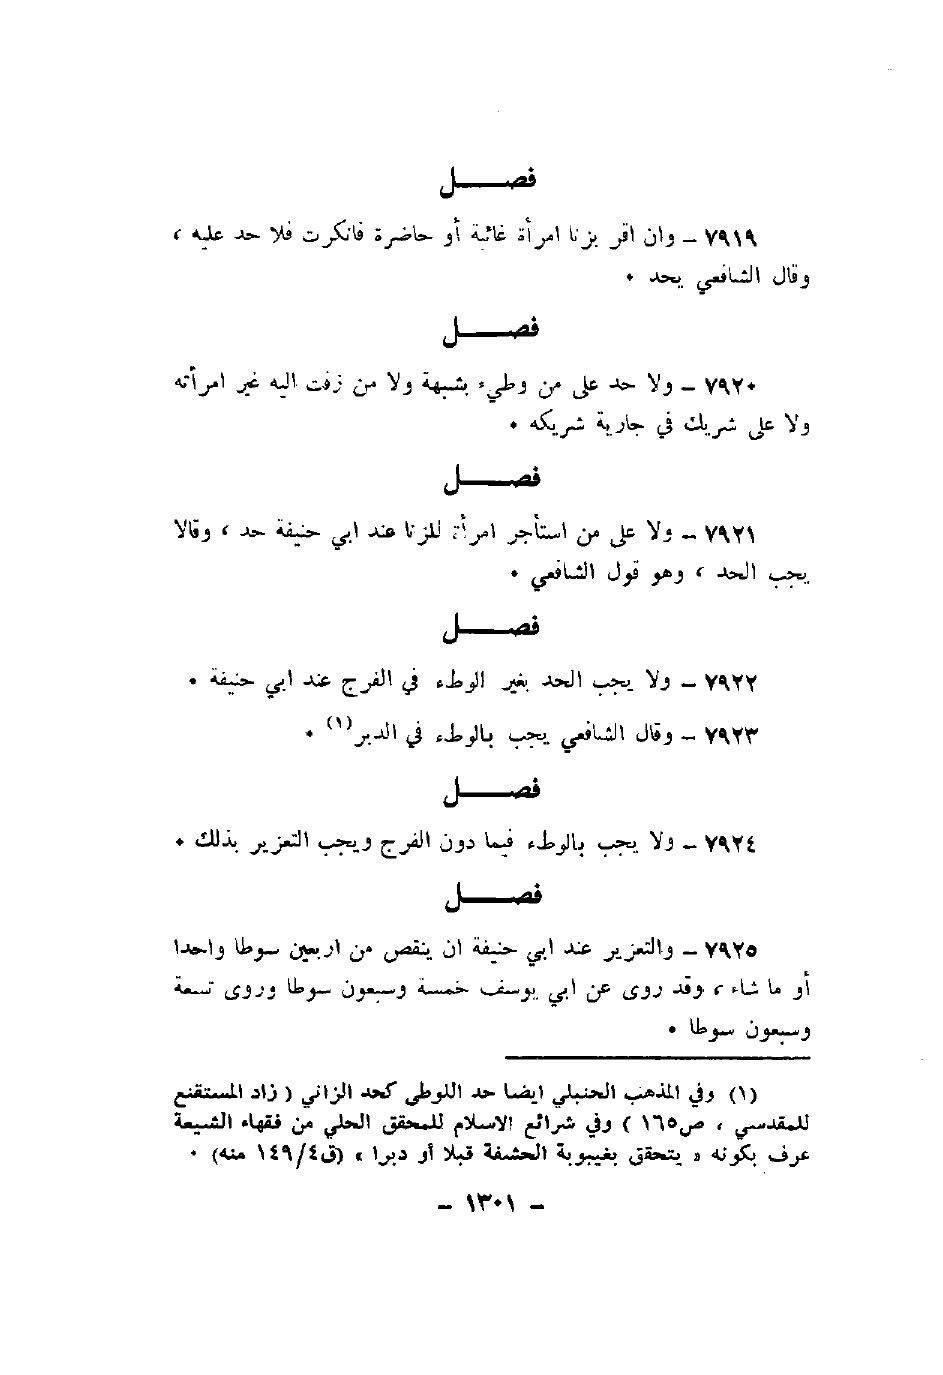 فصـــــل
٧٩١٩ ــ وان اقر بزنا امرأة غائبة أو حاضرة فانكرت فلا حد عليه ،
وقال الشافعي يحد ٠
فصـــــل
٧٩٢٠ ــ ولا حد على من وطيء بشبهة ولا من زفت اليه غير امرأته
ولا على شريك في جارية شريكه ٠
فصـــــل
٧٩٢١ ــ ولا على من استأجر امرأة للزنا عند ابي حنيفة حد ، وقالا
يجب الحد ، وهو قول الشافعي ٠
فصـــــل
٧٩٢٢ ــ ولا يجب الحد بغير الوطء في الفرج عند ابي حنيفة ٠
٧٩٢٣ ــ وقال الشافعي يجب بالوطء في الدبر(١) ٠
فصـــــل
٧٩٢٤ ــ ولا يجب بالوطء فيما دون الفرج ويجب التعزير بذلك ٠
فصـــــل
٧٩٢٥ ــ والتعزير عند ابي حنيفة ان ينقص من اربعين سوطا واحدا
أو ما شاء ، وقد روى عن ابي يوسف خمسة وسبعون سوطا وروى تسعة
وسبعون سوطا ٠
(١) وفي المذهب الحنبلي ايضا حد اللوطي كحد الزاني ( زاد المستقنع
للمقدسي ، ص١٦٥ ) وفي شرائع الاسلام للمحقق الحلي من فقهاء الشيعة
عرف بكونه « يتحقق بغيبوبة الحشفة قبلا أو دبرا » (ق٤/١٤٩ منه) ٠
ــ ١٣٠١ ــ